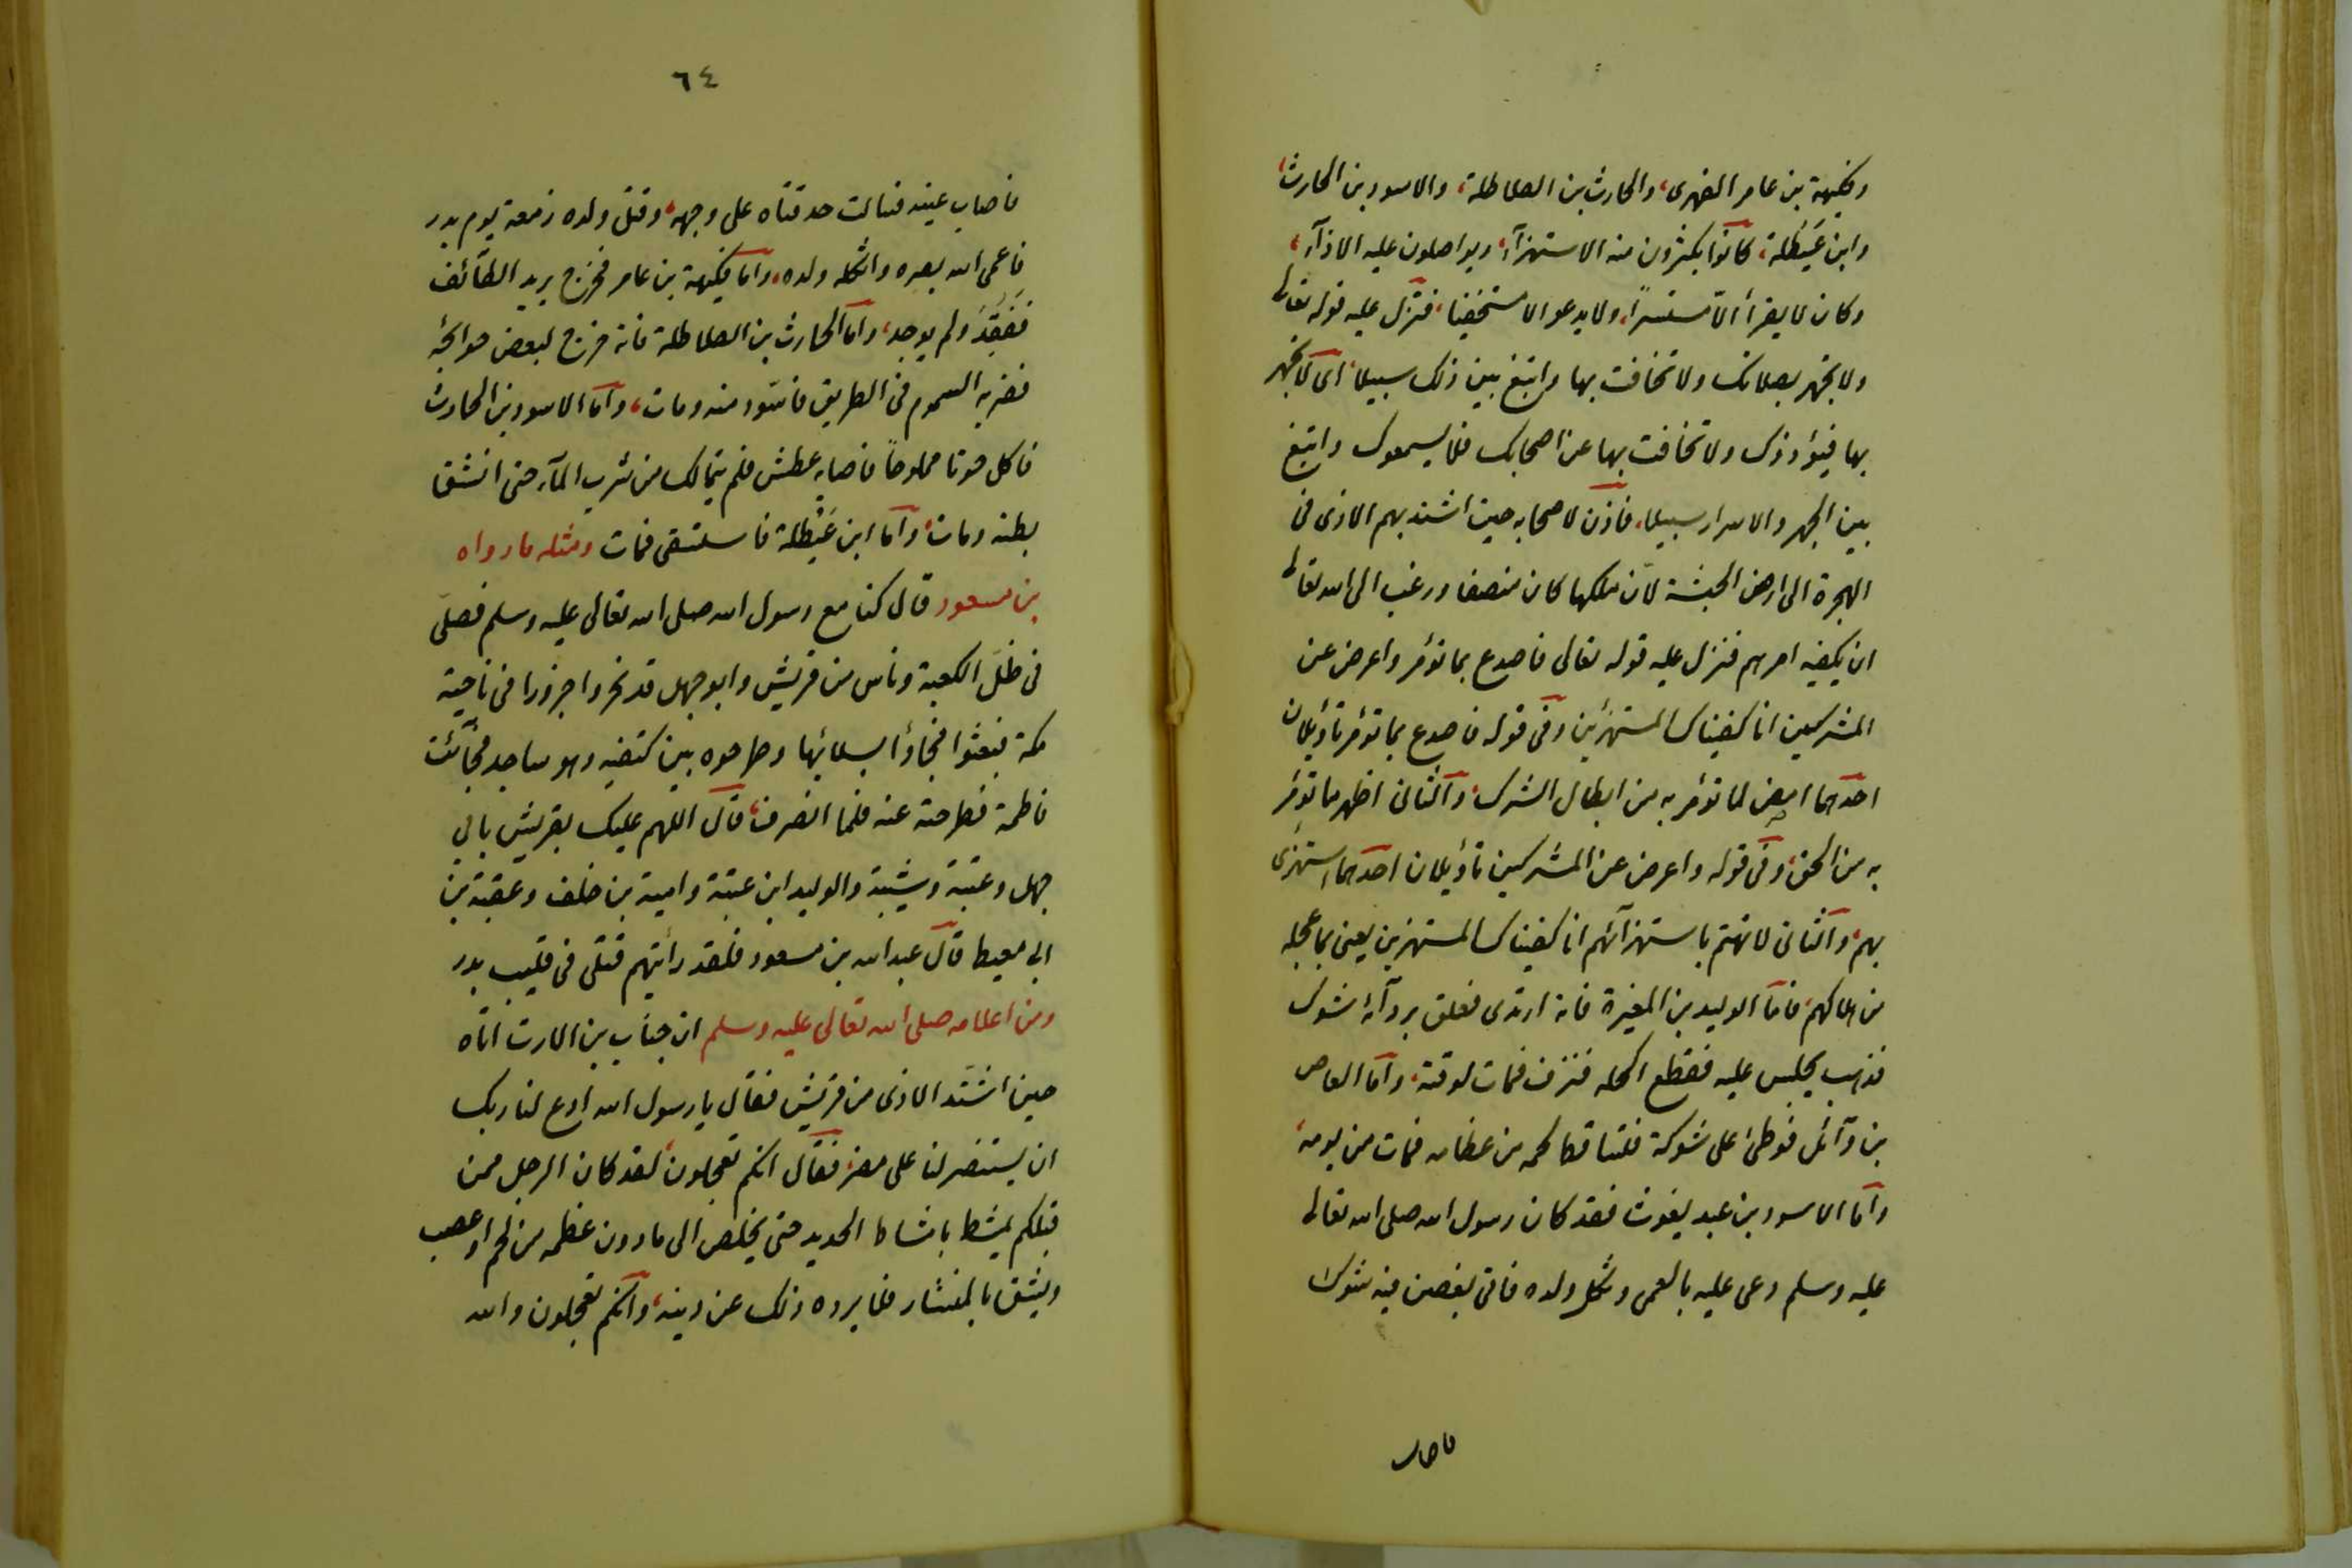 وفكيهة بن عامر الفهرى، والحارث بن الطلاطلة، والاسود بن الحارث،
وابن غَيْطَلة، كانوا يكثرون منه الاستهزآء، ويواصلون عليه الاذآء،
وكان لا يقرأ الّا مستسرًّا، ولا يدعو الا مستخفيًا، فنزل عليه قوله تعالى
ولا تجهر بصلاتك ولا تخافت بها وابتغ بين ذلك سبيلا، اى لا تجهر
بها فيؤذوك ولا تخافت بها عن اصحابك فلا يسمعوك وابتغ
بين الجهر والاسرار سبيلا، فاذن لاصحابه حين اشتد بهم الاذى فى
الهجرة الى ارض الحبشة لانّ ملكها كان منصفا ورغب الى الله تعالى
ان يكفيه امرهم فنزل عليه قوله تعالى فاصدع بما تؤمر واعرض عن
المشركين انا كفيناك المستهزئين وفى قوله فاصدع بما تؤمر تأويلان
احدهما امض لما تؤمر به من ابطال الشرك، والثانى اظهر ما تؤمر
به من الحق، وفى قوله واعرض عن المشركين تأويلان احدهما استهزئ
بهم، والثانى لا تهتم باستهزآئهم انا كفيناك المستهزئين يعنى بما عجله
من اهلاكهم، فامّا الوليد بن المغيرة فانه ارتدى فعلق بردآئه شوك
فذهب يجلس عليه فقطع اكحله فنزف فمات لوقته، وامّا العاص
بن وآئل فوطئ على شوكة فتساقط لحمه من عظامه فمات من يومه،
وامّا الاسود بن عبد يغوث فقد كان رسول الله صلى الله تعالى
عليه وسلم دعى عليه بالعمى وثكل ولده فاتى بغصن فيه شوك
فاصاب
٦٤
فاصاب عينه فسالت حدقتاه على وجهه، وقتل ولده زمعة يوم بدر
فاعمى الله بصره واثكله ولده، وامّا فكيهة بن عامر فخرج يريد الطآئف
فَفُقِدَ ولم يوجد، وامّا الحارث بن الطلاطلة فانه خرج لبعض حوائجه
فضربه السموم فى الطريق فاسّود منه ومات، وامّا الاسود بن الحارث
فاكل حوتا مملوحًا فاصابه عطش فلم يتمالك من شرب المآء حتى انشق
بطنه ومات، وامّا ابن غَيْطلة فاستسقى فمات ومثله ما رواه
بن مسعود قال كنا مع رسول الله صلى الله تعالى عليه وسلم فصلّى
فى ظلّ الكعبة وناس من قريش وابو جهل قد نحروا جزورا فى ناحية
مكة فبعثوا فجاؤا بسلائها وطرحوه بين كتفيه وهو ساجد فجآئت
فاطمة فطرحته عنه فلما انصرف، قال اللهم عليك بقريش بابى
جهل وعتبة وشيبة والوليد ابن عتبة وامية بن خلف وعقبة بن
ابى معيط قال عبد الله بن مسعود فلقد رأيتهم قتلى فى قليب بدر
ومن اعلامه صلى الله تعالى عليه وسلم ان خباب بن الارت اتاه
حين اشتّد الاذى من قريش فقال يا رسول الله ادع لنا ربك
ان يستنصر لنا على مضر، فقال انكم تعجلون، لقد كان الرجل ممن
قبلكم يمشط بامشاط الحديد حتى يخلص الى ما دون عظمه من لحم او عصب
ويشق بالمنشار فلا يرده ذلك عن دينه، وانكم تعجلون والله